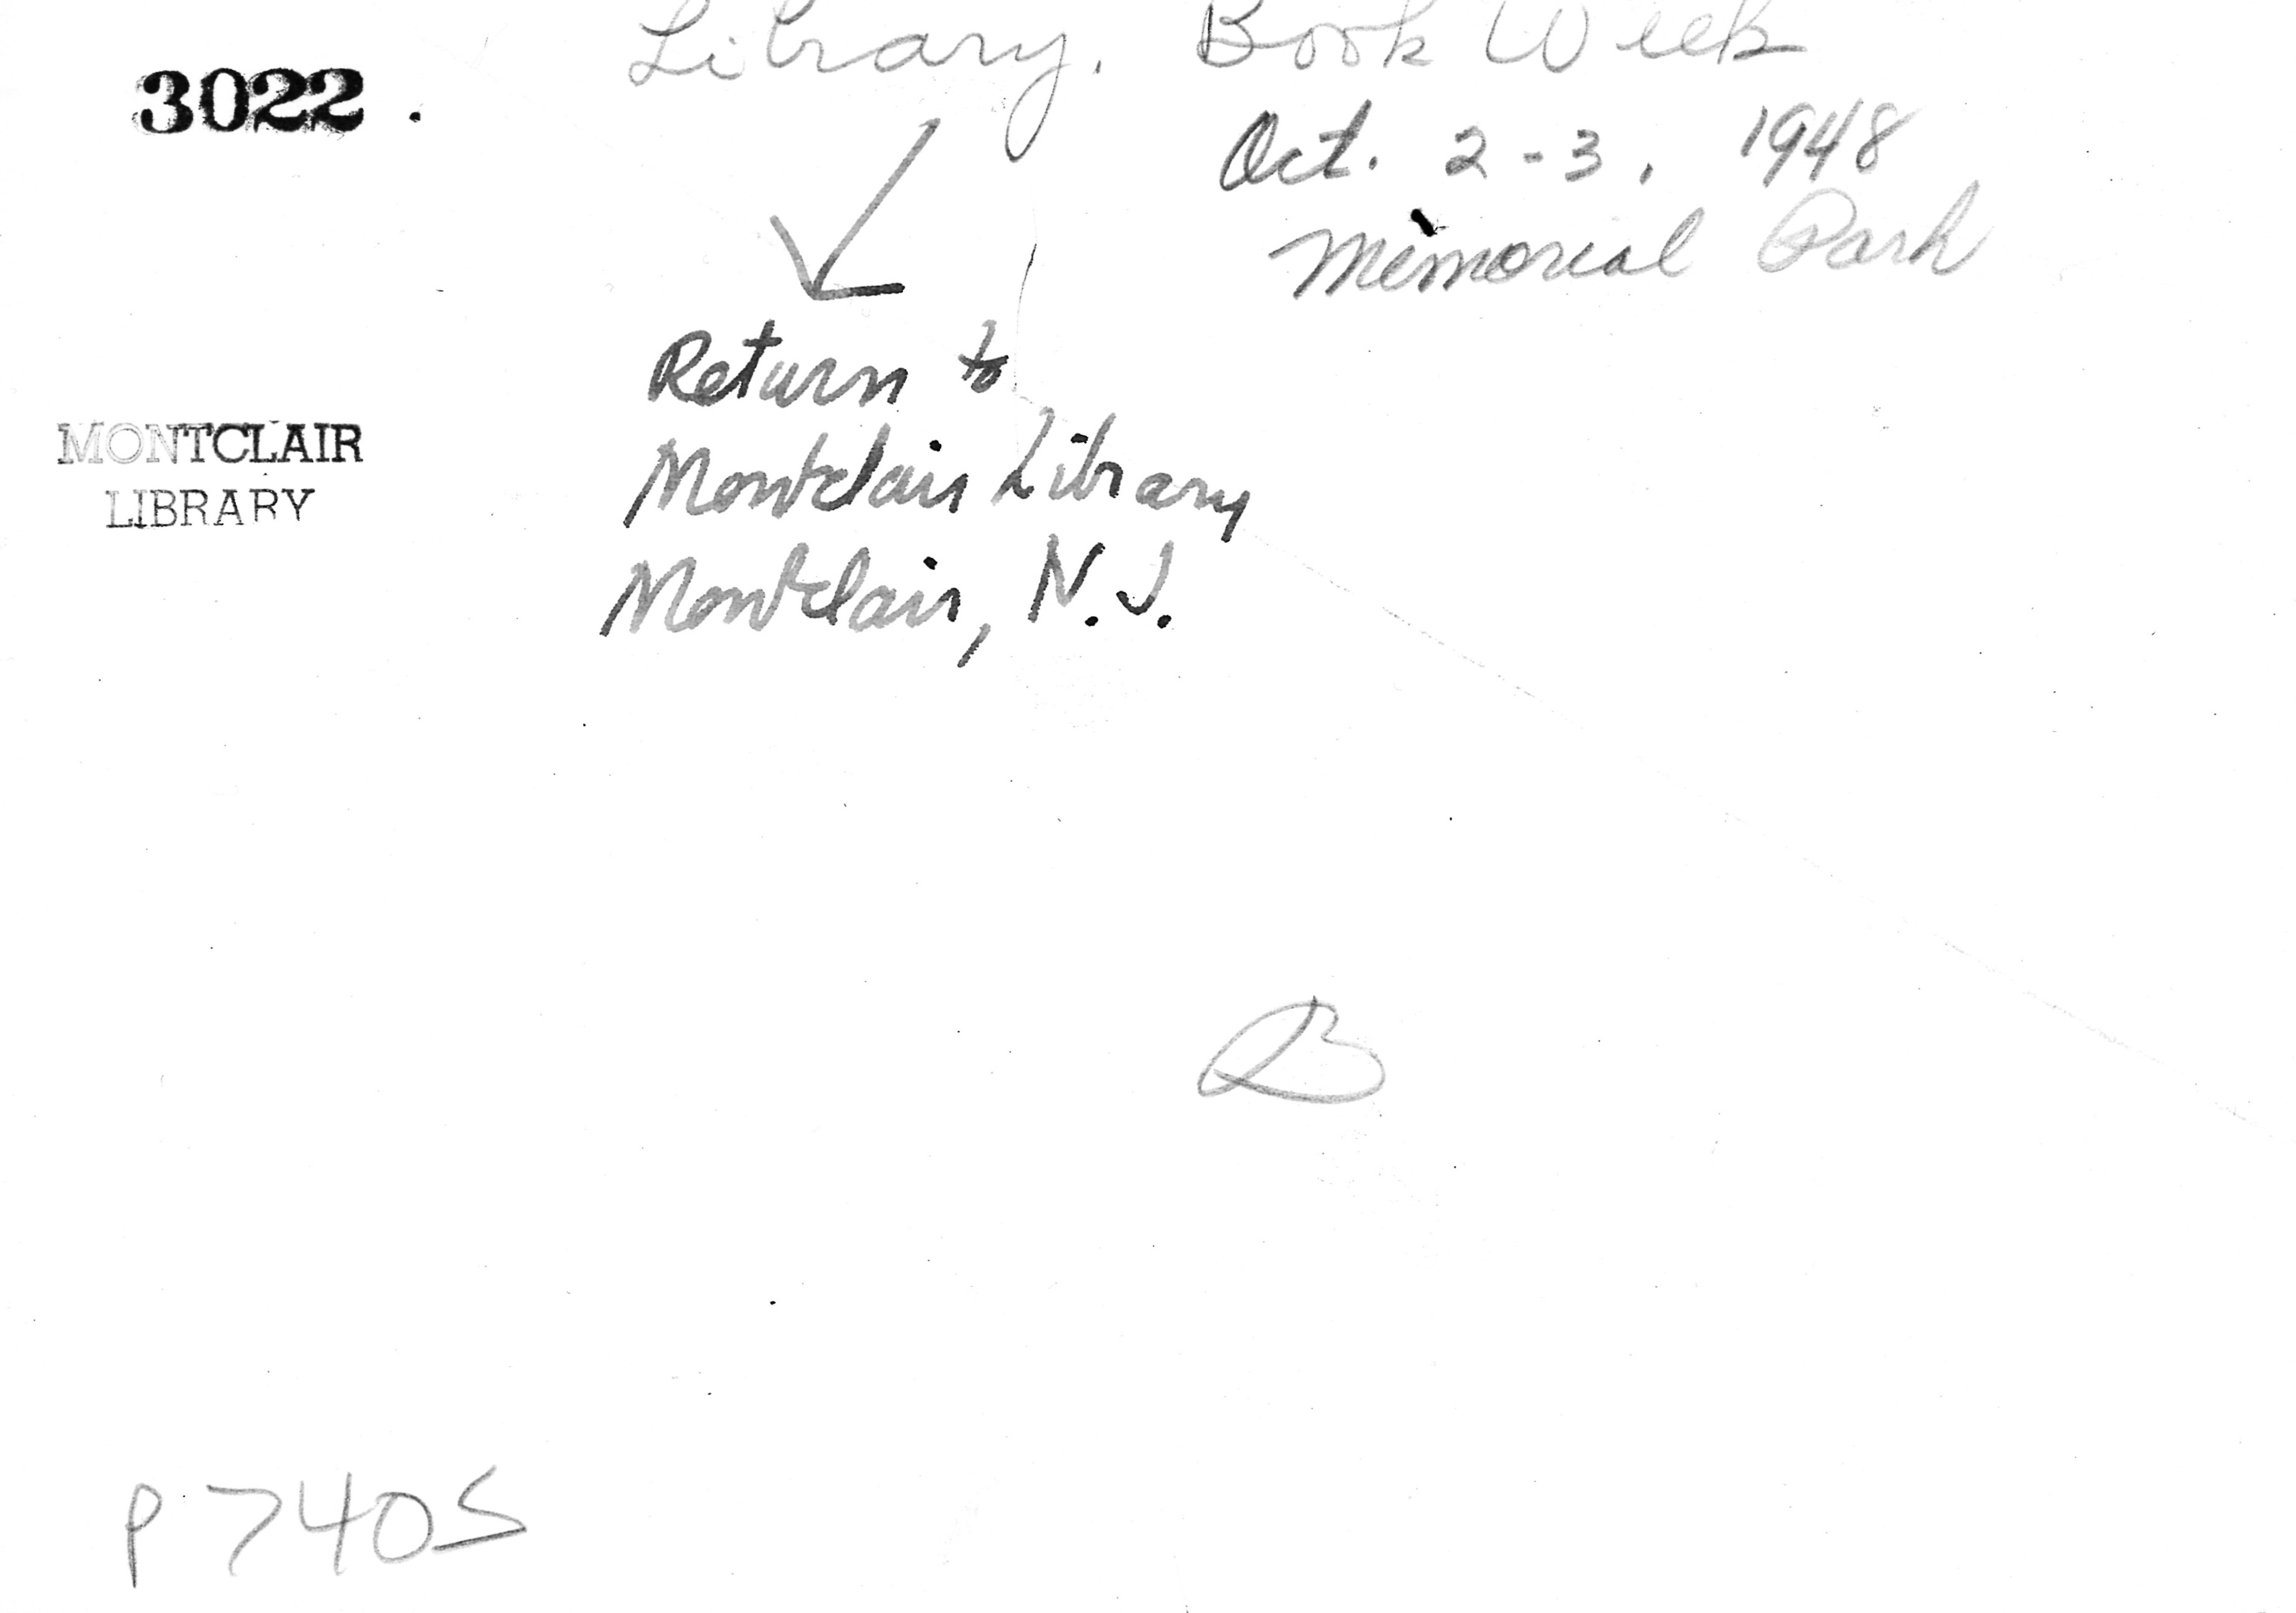 Library. Book Week
3022.
Oct. 2-3, 1948
Memorial Park
Return to
Montclair Library
Montclair, N.J.
MONTCLAIR
LIBRARY
B
P7405